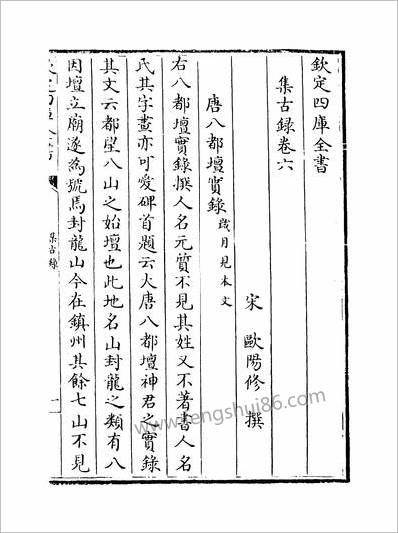 欽定四庫全書
集古録卷六
宋　歐陽修　撰
唐八都壇實録歲月見本文
右八都壇實録撰人名元質不見其姓又不著書人名
氏其字畫亦可愛碑首題云大唐八都壇神君之實録
其文云都望八山之始壇也此地名山封龍之類有八
因壇立廟遂為號焉封龍山今在鎮州其餘七山不見
集古録
www.fengshui86.com